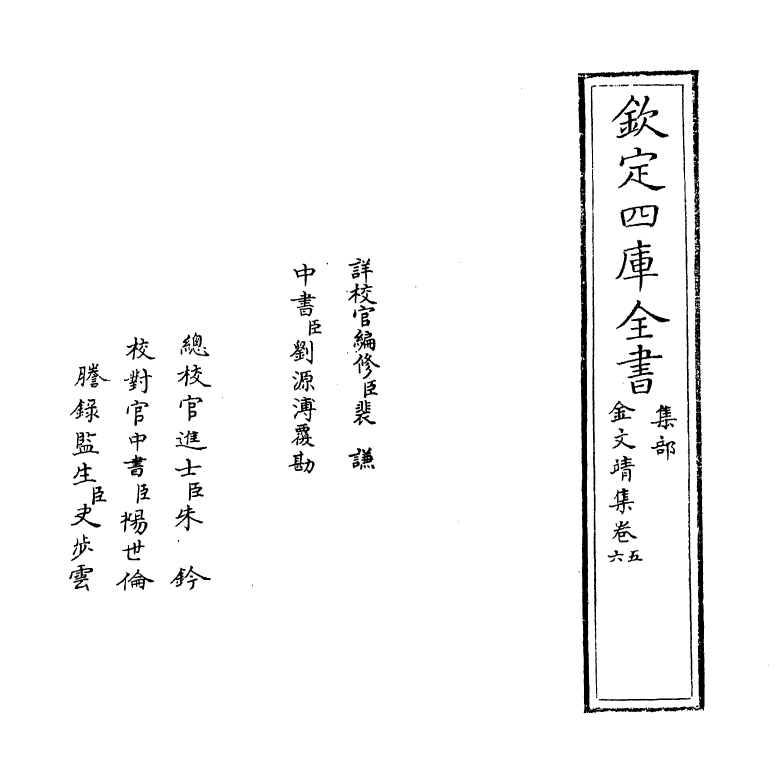 欽定四庫全書
集部
金文靖集卷五六
詳校官編修臣裴謙
中書臣劉源溥覆勘
總校官進士臣朱鈐
校對官中書臣楊世倫
謄錄監生臣史步雲